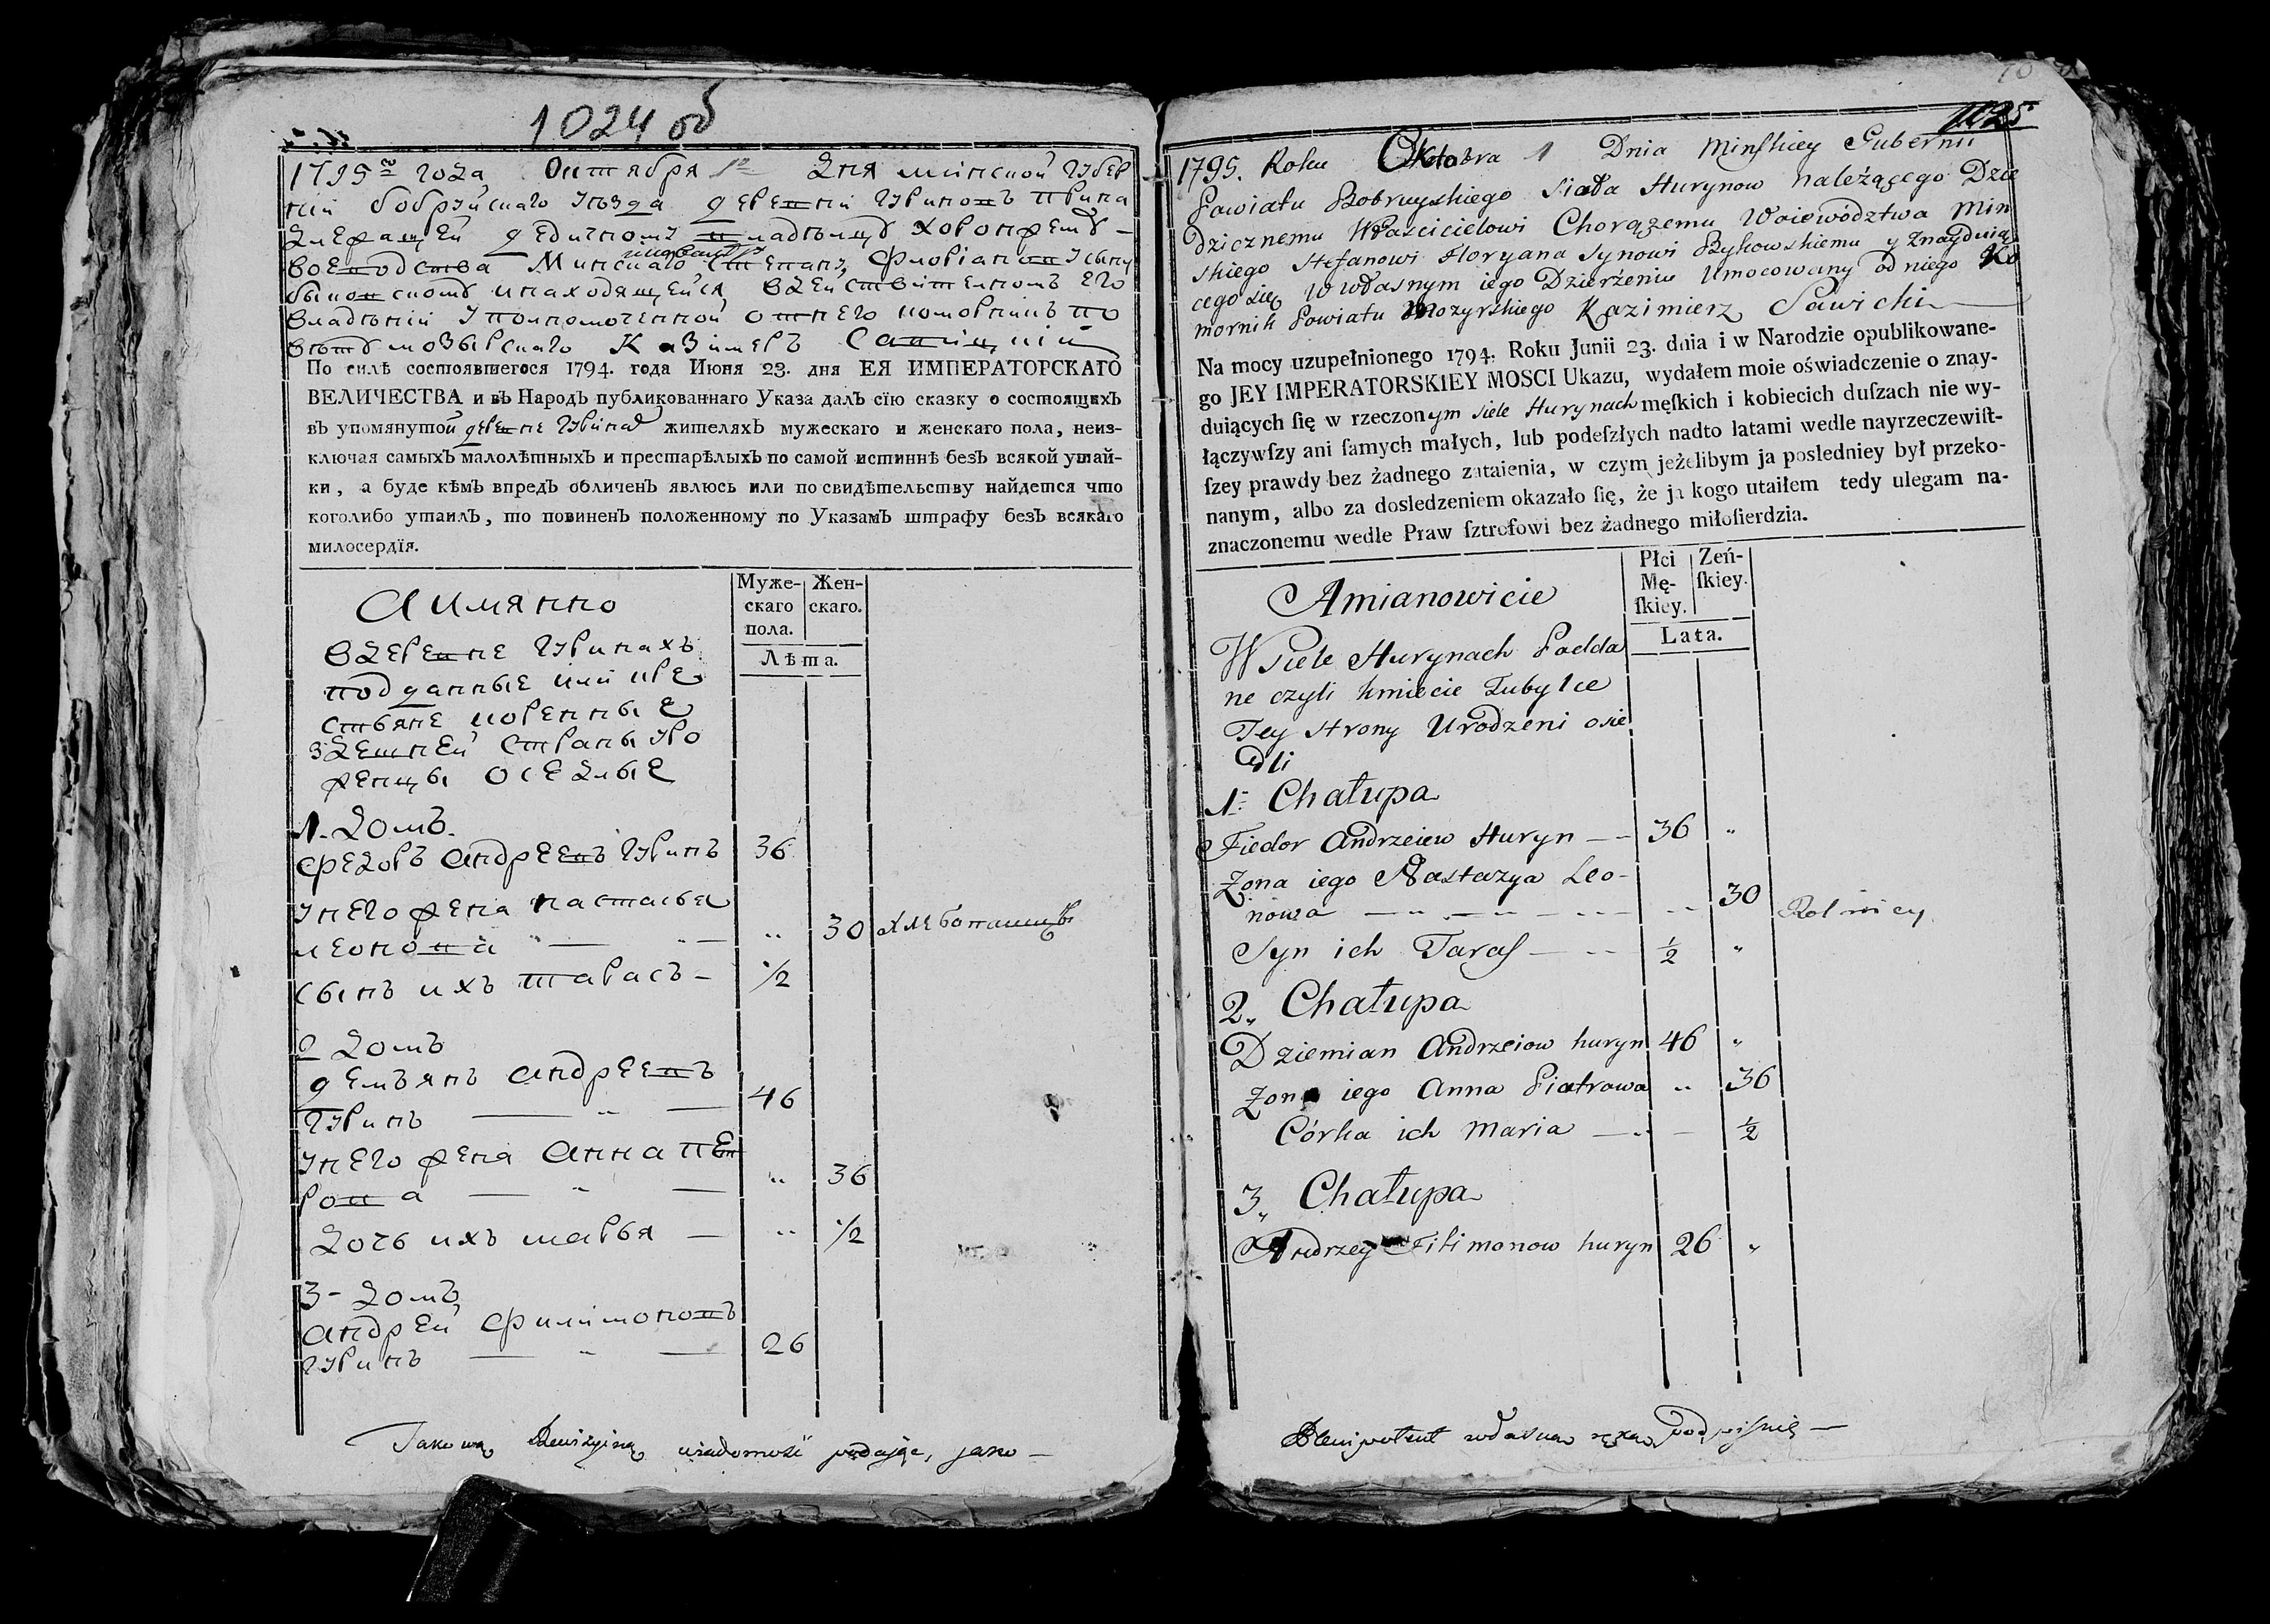 1024 об
1795 года Октября 1 дня Минской Губер
нии бобруйскаго уѣзда деревни Гуриновъ прина
длежащей дедичному владѣльцу хоронжему
воеводства Минскаго Степану Флориановусыну
быковскому инаходящейся вдействительномъ его
владѣнии уполномоченной отнего коморникъ по
вѣту мозырскаго Казимеръ Савицкий
По силѣ состоявшегося 1794. года Июня 23. дня ЕЯ ИМПЕРАТОРСКАГО
ВЕЛИЧЕСТВА и въ Народъ публикованнаго Указа далъ сїю сказку о состоящихъ
въ упомянутой деревне Гуринах жителяхъ мужескаго и женскаго пола, неиз-
ключая самыхъ малолѣтныхъ и престарѣлыхъ по самой истиннѣ безъ всякой утай-
ки, а буде кѣмъ впредь обличенъ явлюсь или по свидѣтельству найдется что
коголибо утаилъ, то повиненъ положенному по Указамъ штрафу безъ всякаго
милосердїя.
Аимянно
Муже-
скаго
пола.
Жен-
скаго.
Лѣта.
вдеревне Гуринахъ
подданные или кре
стьяне коренные
здешней страны уро
женцы оседлые
1. домъ.
Федоръ андреевъ Гуринъ 36
унего жена настасья
леонова 30 хлебопашцы
сынъ ихъ тарасъ 1/2
2 домъ
демьянъ андреевъ
Гуринъ 46
унего жена анна пет
рова 36
дочь ихъ марья 1/2
3 домъ
андрей филимоновъ
Гуринъ 26
Takową Rewizyiną wiadomość podając, jako
1025
1795. Roku Oktobra 1 Dnia Minskiey Gubernii
Powiatu Bobruyskiego Sioła Hurynow należącego Dzie
dzicznemu Włascicielowi Chorążemu Woiewództwa Min
skiego Stefanowi Floryana Synowi Bykowskiemu y Znayduią
cego się w własnym iego Dzierżeniu Umocowany od niego Ko
mornik Powiatu Mozyrskiego Kazimierz Sawicki
Na mocy uzupełnionego 1794. Roku Junii 23. dnia i w Narodzie opublikowane-
go JEY IMPERATORSKIEY MOSCI Ukazu, wydałem moie oświadczenie o znay-
duiących ſię w rzeczonym siele Hurynach męſkich i kobiecich duſzach nie wy-
łączywſzy ani ſamych małych, lub podeſzłych nadto latami wedle nayrzeczewiſt-
ſzey prawdy bez żadnego zataienia, w czym jeżelibym ja posledniey był przeko-
nanym, albo za dosledzeniem okazało ſię, że ja kogo utaiłem tedy ulegam na-
znaczonemu wedle Praw ſztrofowi bez żadnego miłoſierdzia.
Amianowicie
Płci
Mę-
ſkiey.
Zeń-
ſkiey.
Lata.
W Siele Hurynach Podda
ne czyli kmiecie Tubylce
Tey strony Urodzeni osie
dli
1. Chałupa
Fiedor Andrzeiew Huryn 36
Zona iego Nastazya Leo-
nowa 30 Rolnicy
Syn ich Taras 1/2
2. Chałupa
Dziemian Andrzeiow huryn 46
Zona iego Anna Piatrowa 36
Córka ich Maria 1/2
3. Chałupa
Andrzey Filimonow huryn 26
Plenipotent własną ręką podpisuię